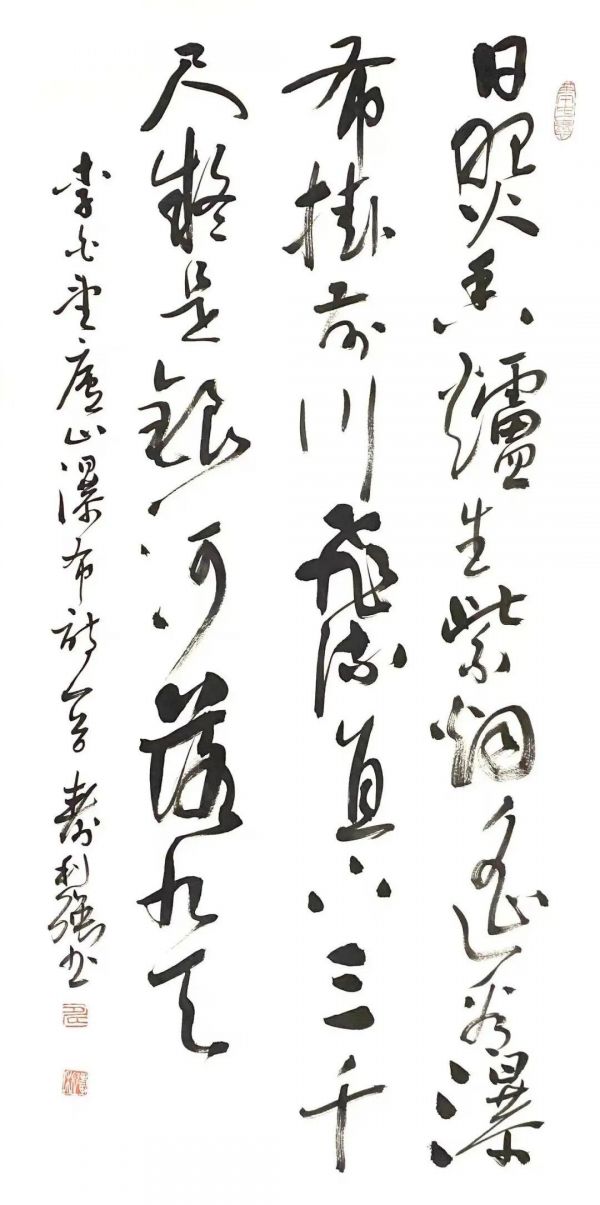 日照香爐生紫烟遥看瀑
布掛前川飛流直下三千
尺疑是銀河落九天
李白望廬山瀑布詩一首 寿利強书